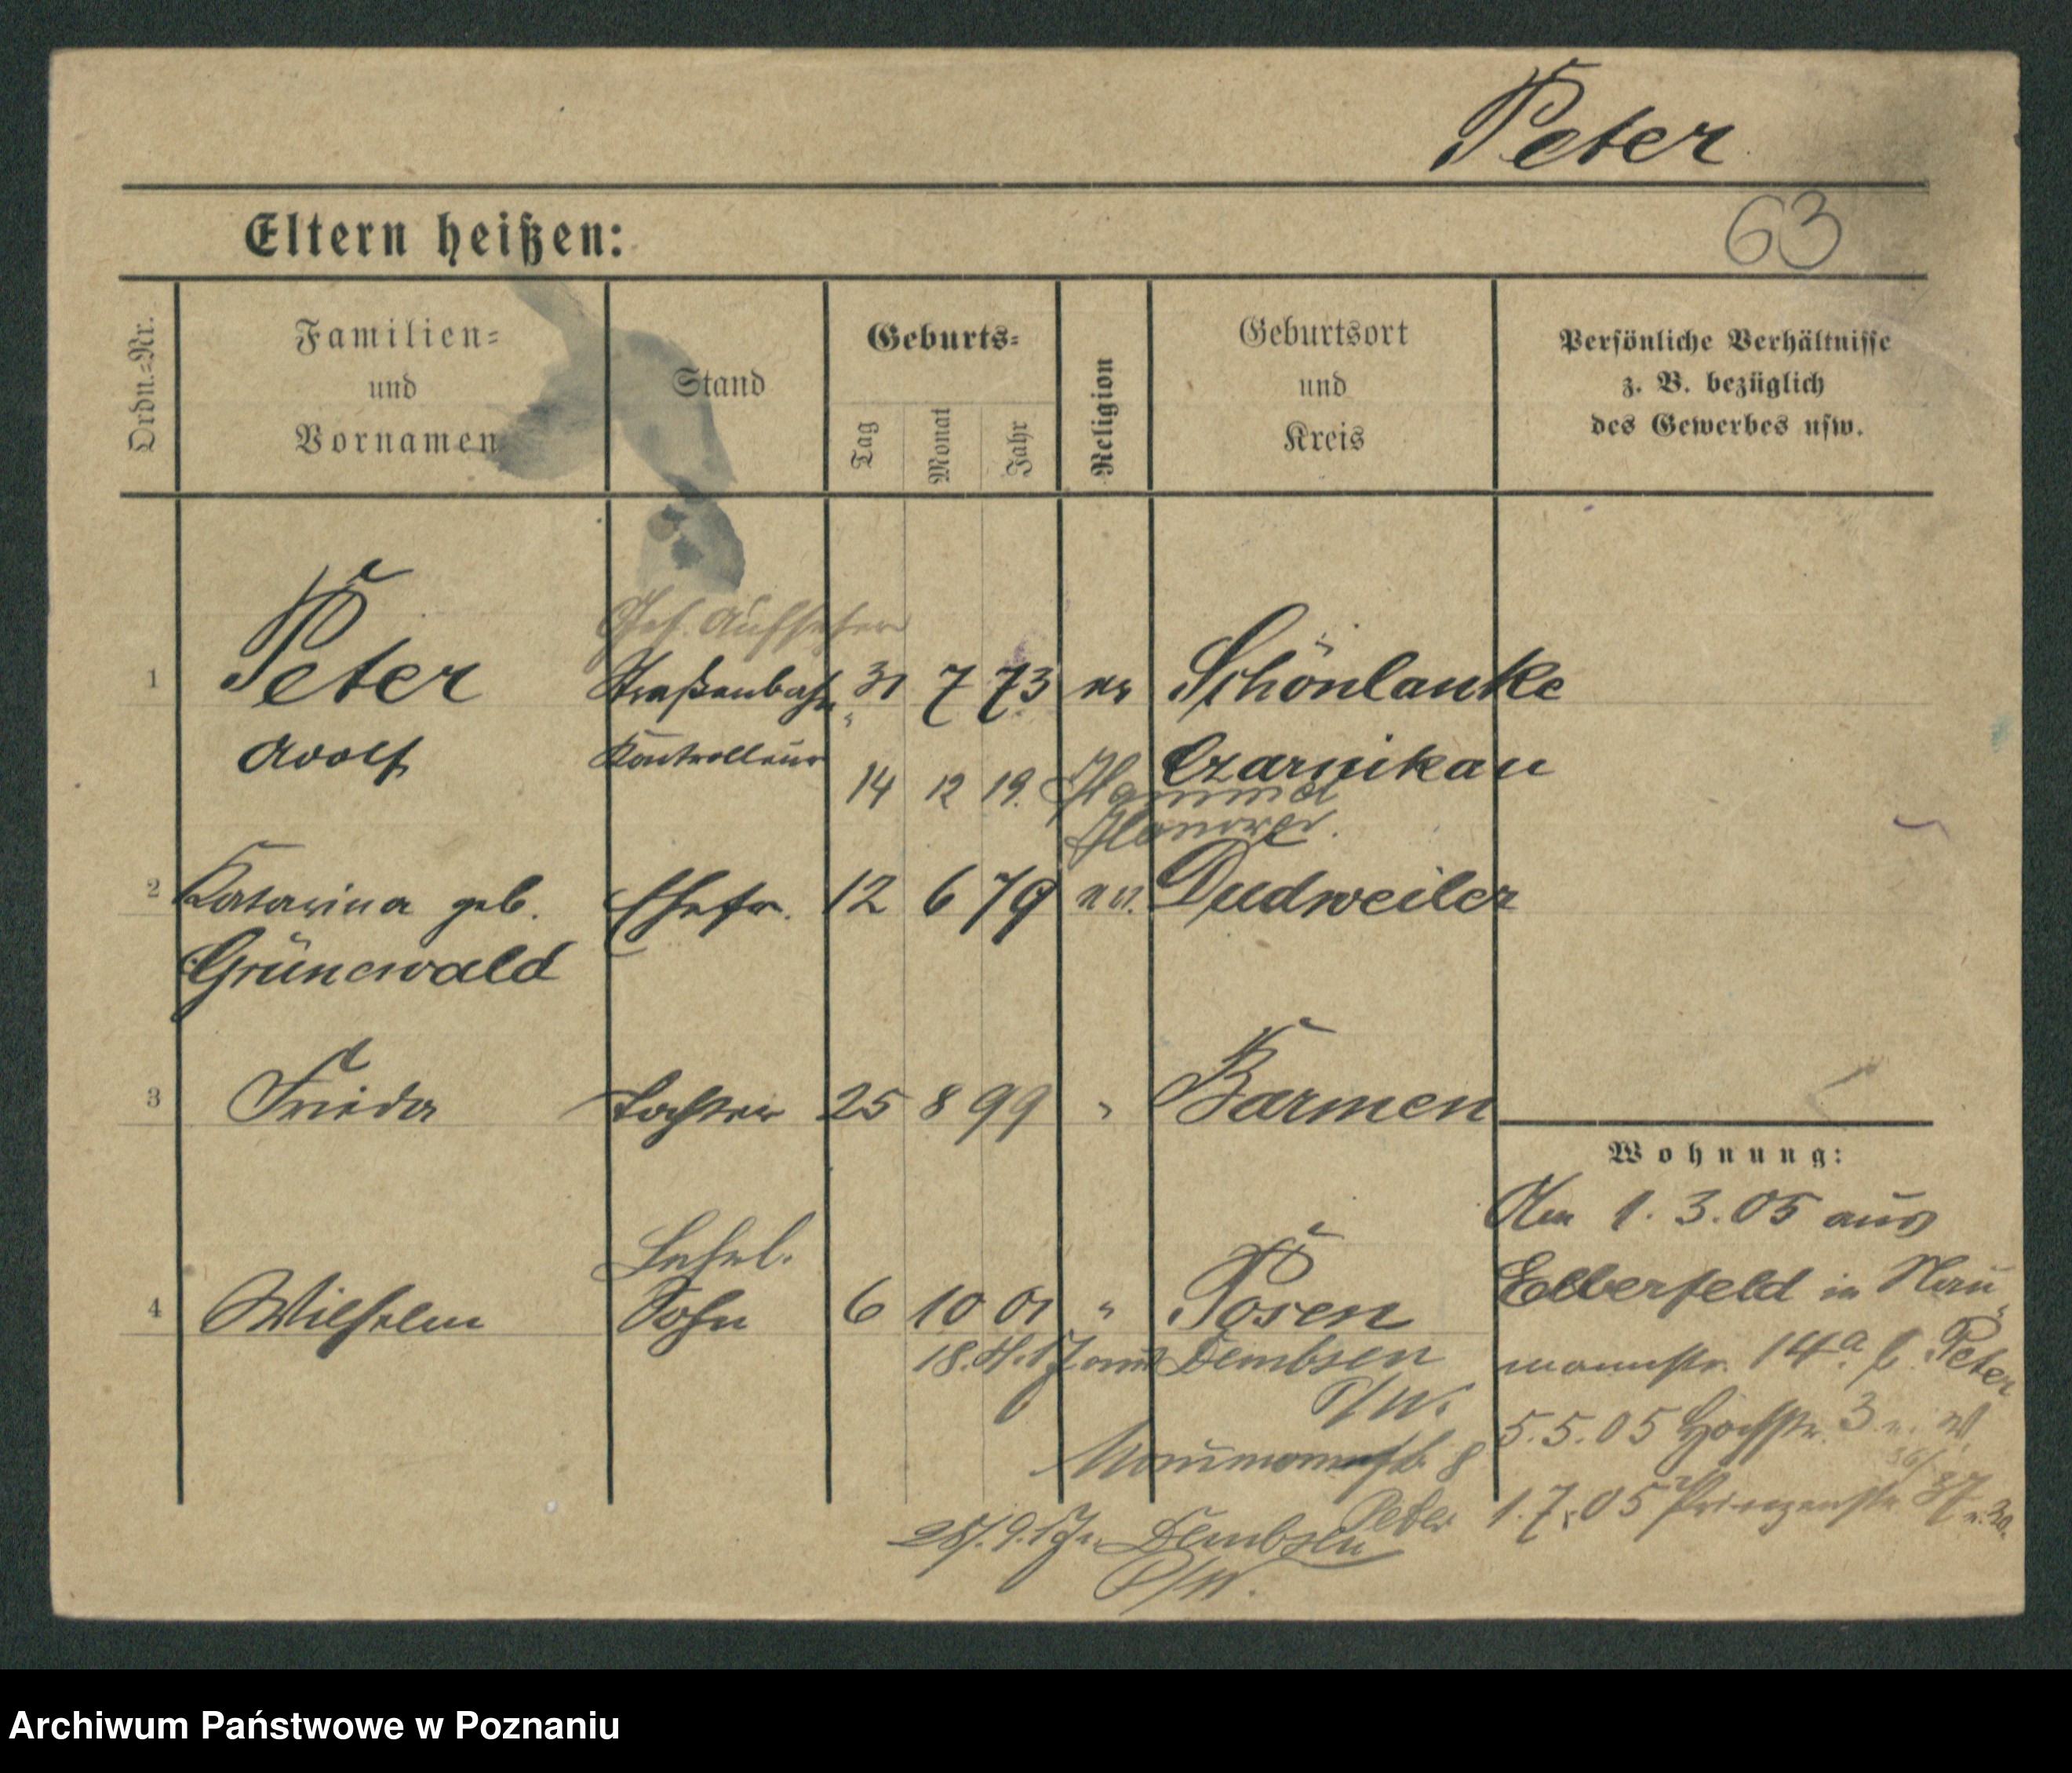 Peter
63
Eltern heißen:
Ordn.-Nr.
Familien-
und
Vornamen
Stand
Geburts-
Tag
Monat
Jahr
Religion
Geburtsort
und
Kreis
Persönliche Verhältnisse
z. B. bezüglich
des Gewerbes usw.
Aufseher
1 Peter Straßenbahn 31 7 73 ev Schönlanke
Adolf Kontrolleur Czarnikau
14 12 19.
Hanover.
2 Katarina geb. Ehefr. 12 6 79 ev. Dudweiler
Grünewald
3 Frieda Tochter 25 8 99 " Barmen
Wohnung:
Am 1.3.05 aus
Elberfeld in Nau-
mannstr. 14a b. Peter
5.5.05 Hochstr. 3
1.7.05 Prinzenstr. 37
4 Wilhelm Sohn 6 10 01 " Posen
18. 4. 17 Dembsen
P/W.
Naumannstr. 8
Peter
28/. 9. 17 Dembsen
P/W.
Archiwum Państwowe w Poznaniu